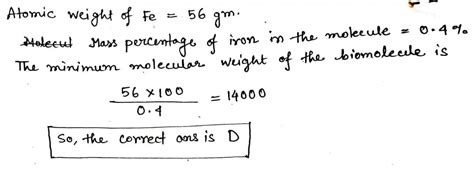 Atomic weight of Fe = 56 gm.
Mass percentage of iron in the molecule = 0.4%
The minimum molecular weight of the biomolecule is
56 × 100 / 0.4 = 14000
So, the correct ans is D